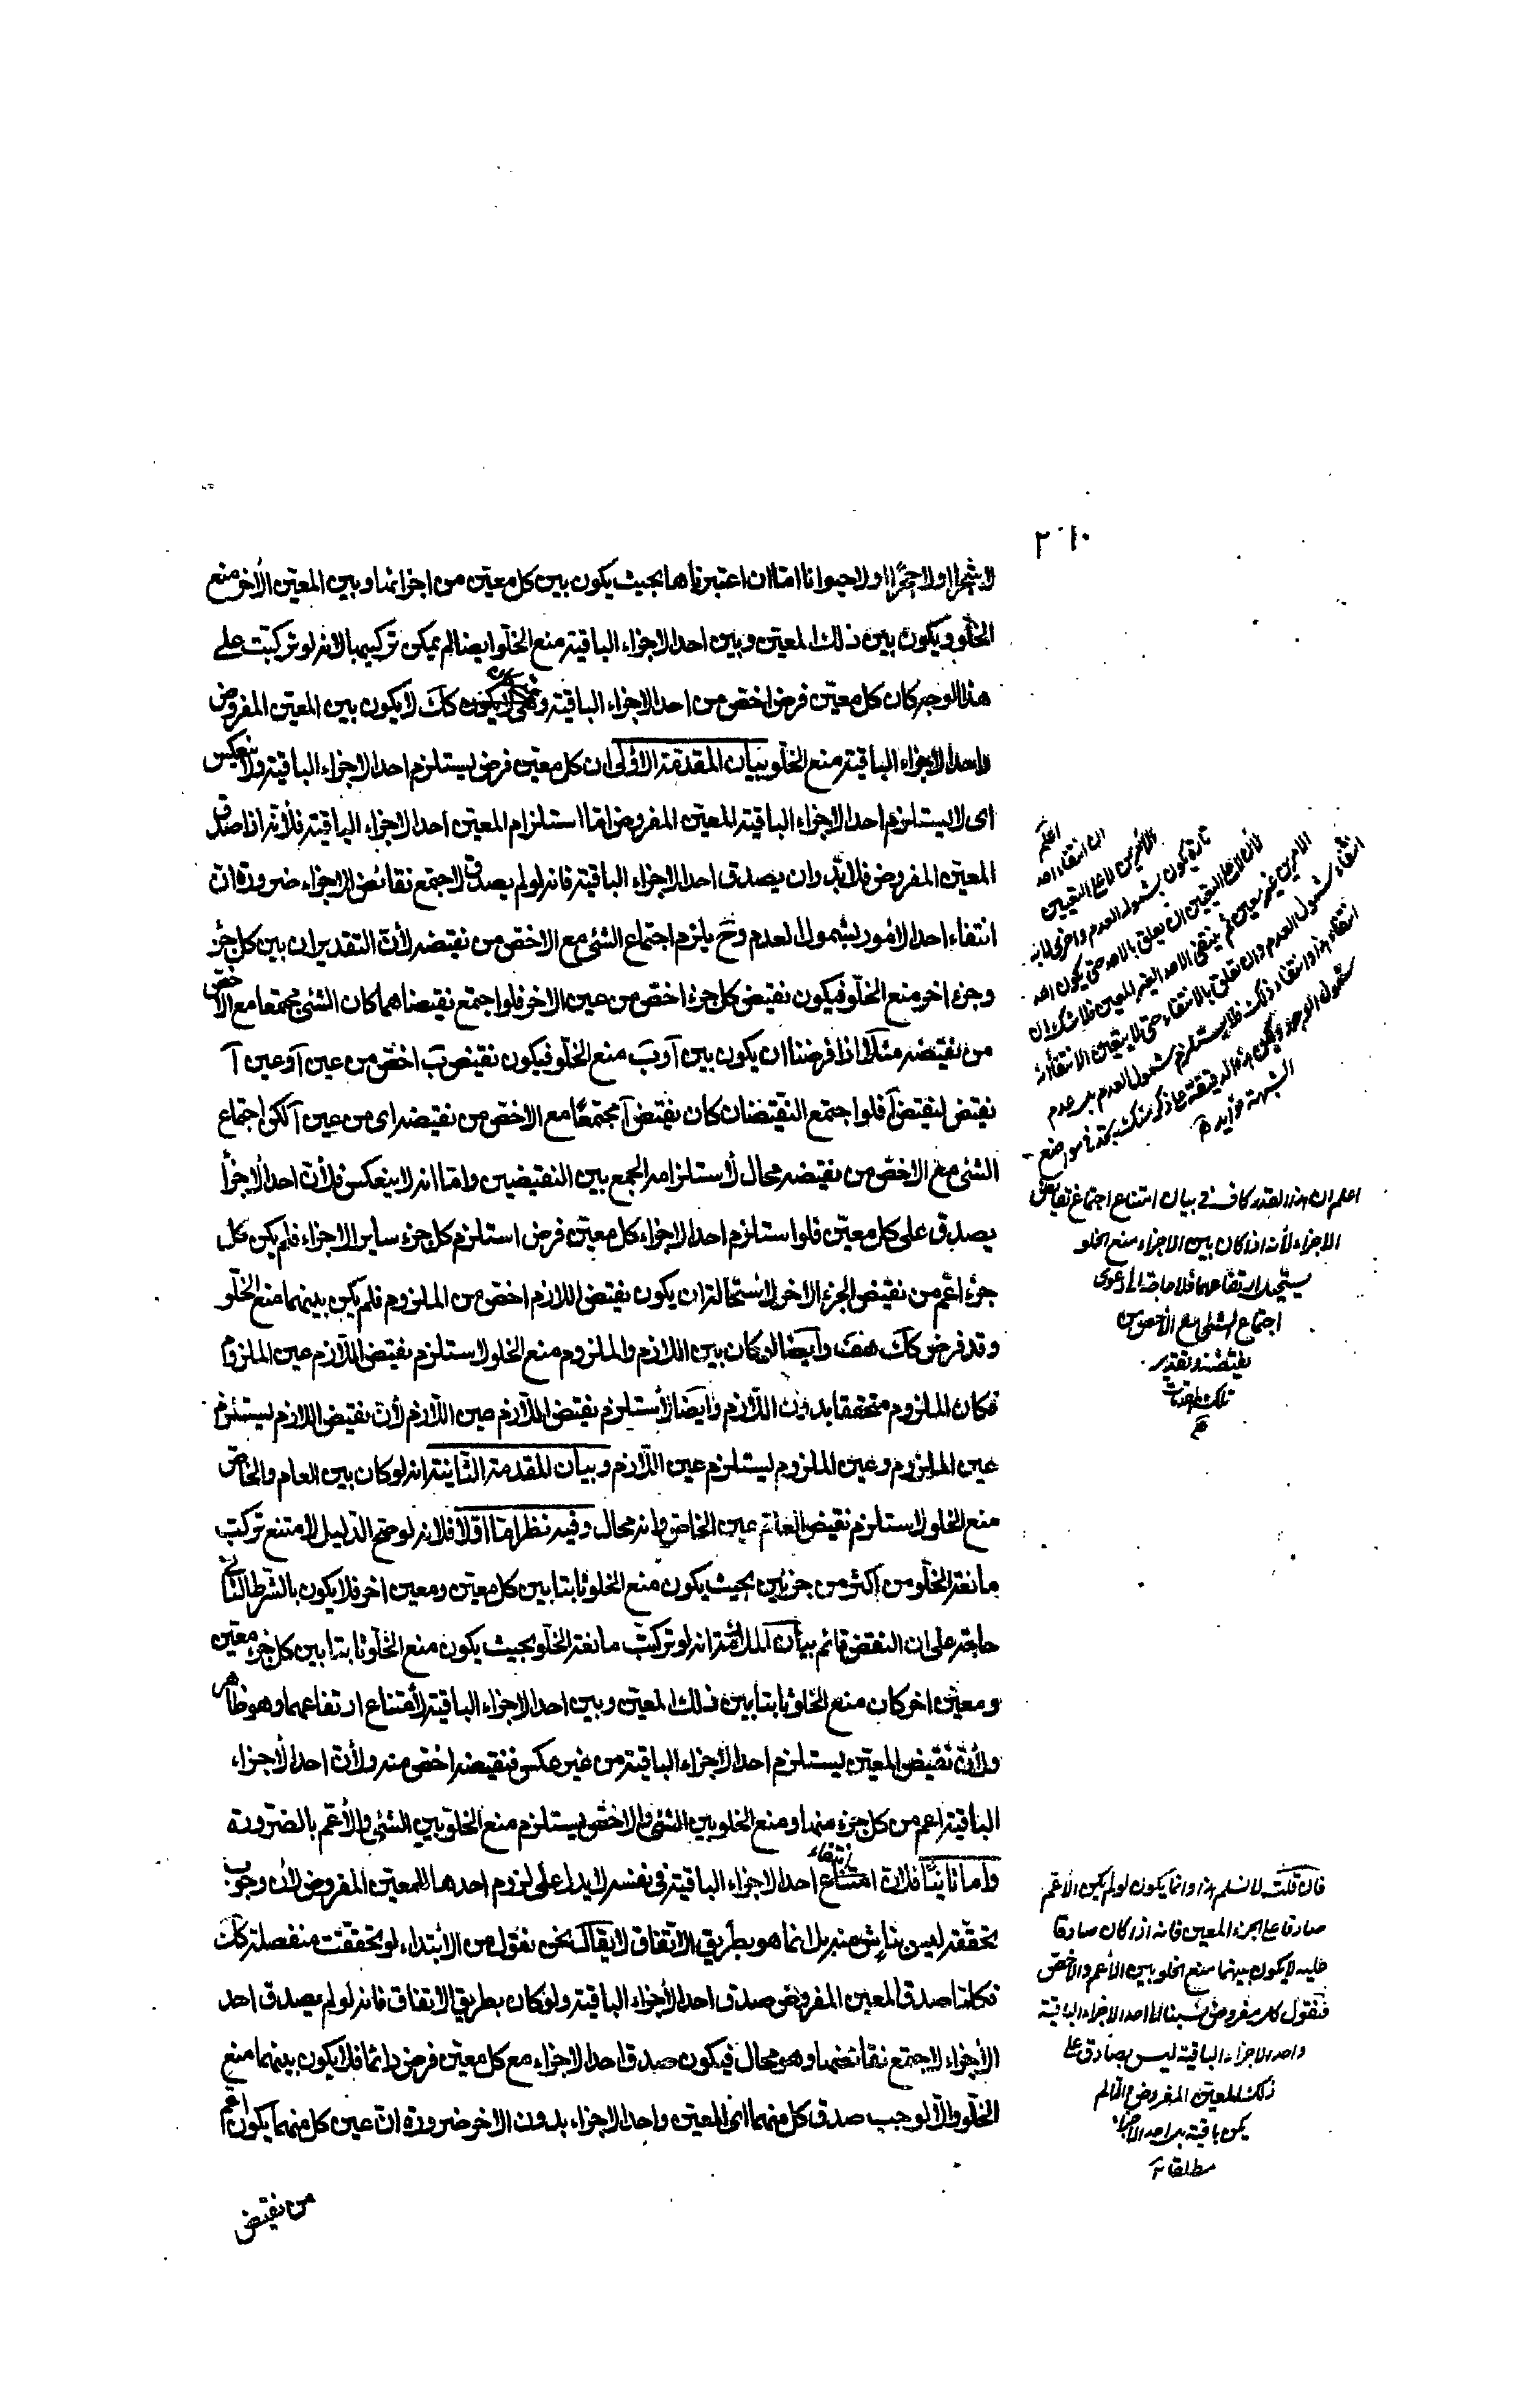 ٢٦٠
لا شجرا ولا حجرا او لا حيوانا اما ان اعتبرناها بحيث يكون بين كل معين من اجزائها وبين المعين الآخر منع
الخلو ويكون بين ذلك المعين وبين احد الاجزاء الباقية منع الخلو ايضا لم يمكن تركيبها لانه لو تركبت على
هذا الوجه كان كل معين فرض اخص من احد الاجزاء الباقية كك لا يكون بين المعين المفروض
واحد الاجزاء الباقية منع الخلو بيان المقدمة الاولى ان كل معين فرض يستلزم احد الاجزاء الباقية ولا ينعكس
اى لا يستلزم احد الاجزاء الباقية المعين المفروض اما استلزام المعين احد الاجزاء الباقية فلأنه اذا صدق
المعين المفروض فلابد وان يصدق احد الاجزاء الباقية فانه لو لم يصدق لاجتمع نقائض الاجزاء ضرورة ان
انتفاء احد الأمور بشمول العدم وح يلزم اجتماع الشئ مع الاخص من نقيضه لأن التقدير ان بين كل جزء
وجزء اخر منع الخلو فيكون نقيض كل جزء اخص من عين الاخر فلو اجتمع نقيضاهما كان الشئ مجتمعا مع الاخص
من نقيضه مثلا اذا فرضنا ان يكون بين آ وب منع الخلو فيكون نقيض ب اخص من عين آ وعين آ
نقيض لنقيض آ فلو اجتمع النقيضان كان نقيض آ مجتمعا مع الاخص من نقيضه اى من عين آ لكن اجتماع
الشئ مع الاخص من نقيضه محال لأستلزامه الجمع بين النقيضين واما انه لا ينعكس فلأن احد الاجزأ
يصدق على كل معين فلو استلزم احد الاجزاء كل معين فرض استلزم كل جزء ساير الاجزاء فلم يكن كل
جزء اعم من نقيض الجزء الاخر لاستحالة ان يكون نقيض اللازم اخص من الملزوم فلم يكن بينهما منع الخلو
وقد فرض كك هف وايضا لو كان بين اللازم والملزوم منع الخلو لاستلزم نقيض اللازم عين الملزوم
فكان الملزوم متحققا بدون اللازم وايضا لأستلزم نقيض اللازم عين اللازم لأن نقيض اللازم ليستلزم
عين الملزوم وعين الملزوم ليستلزم عين اللازم وبيان المقدمة الثانية انه لو كان بين العام والخاص
منع الخلو لاستلزم نقيض العام عين الخاص وانه محال وفيه نظر اما اولا فلانه لو صح الدليل لامتنع تركب
مانعة الخلو من اكثر من جزئين بحيث يكون منع الخلو ثابتا بين كل معين ومعين اخر فلا يكون بالشرط الثانى
حاجة على ان النقض قائم بيان الملازمة انه لو تركبت مانعة الخلو بحيث يكون منع الخلو ثابتا بين كل جزء معين
ومعين اخر كان منع الخلو ثابتا بين ذلك المعين وبين احد الاجزاء الباقية لأمتناع ارتفاعهما وهو ظاهر
ولأن نقيض المعين يستلزم احد الاجزاء الباقية من غير عكس فنقيضه اخص منه ولأن احد الأجزاء
الباقية اعم من كل جزء منها ومنع الخلو بين الشئ والاخص يستلزم منع الخلو بين الشئ والأعم بالضرورة
واما ثانيا فلان انتفاء احد الاجزاء الباقية فى نفسه لا يدل على لزوم احدها للمعين المفروض لأن وجوب
تحققه ليس بناش منه بل انما هو بطريق الاتفاق لا يقال نحن نقول من الأبتداء لو تحققت منفصلة كك
فكلما صدق المعين المفروض صدق احد الأجزاء الباقية ولو كان بطريق الاتفاق فانه لو لم يصدق احد
الأجزاء لاجتمع نقائضها وهو محال فيكون صدق احد الاجزاء مع كل معين فرض دائما فلا يكون بينهما منع
الخلو والا لوجب صدق كل منهما اى المعين واحد الاجزاء بدون الاخر ضرورة ان عين كل منهما يكون اعم
من نقيض
اعلم
ان انتفاء احد
الأمرين لا على التعيين
تارة يكون بشمول العدم واخرى
اعلم ان هذا القدر كاف فى بيان امتناع اجتماع نقايض
الاجزاء لأنه اذا كان بين الاجزاء منع الخلو
يستحيل ارتفاعهما فلا حاجة الى دعوى
اجتماع الشئ مع الأخص من
نقيضه وتقدير
تلك المقدمات
فان قلت لا نسلم هذا وانما يكون لو لم يكن الأعم
صادقا على الجزء المعين فانه اذا كان صادقا
عليه لا يكون بينهما منع الخلو بين الأعم والاخص
فنقول كل مفروض نسبناه الى احد الاجزاء الباقية
واحد الاجزاء الباقية ليس بصادق على
ذلك المعين المفروض والا لم
يكن باقية بل احد الاجزاء
مطلقا